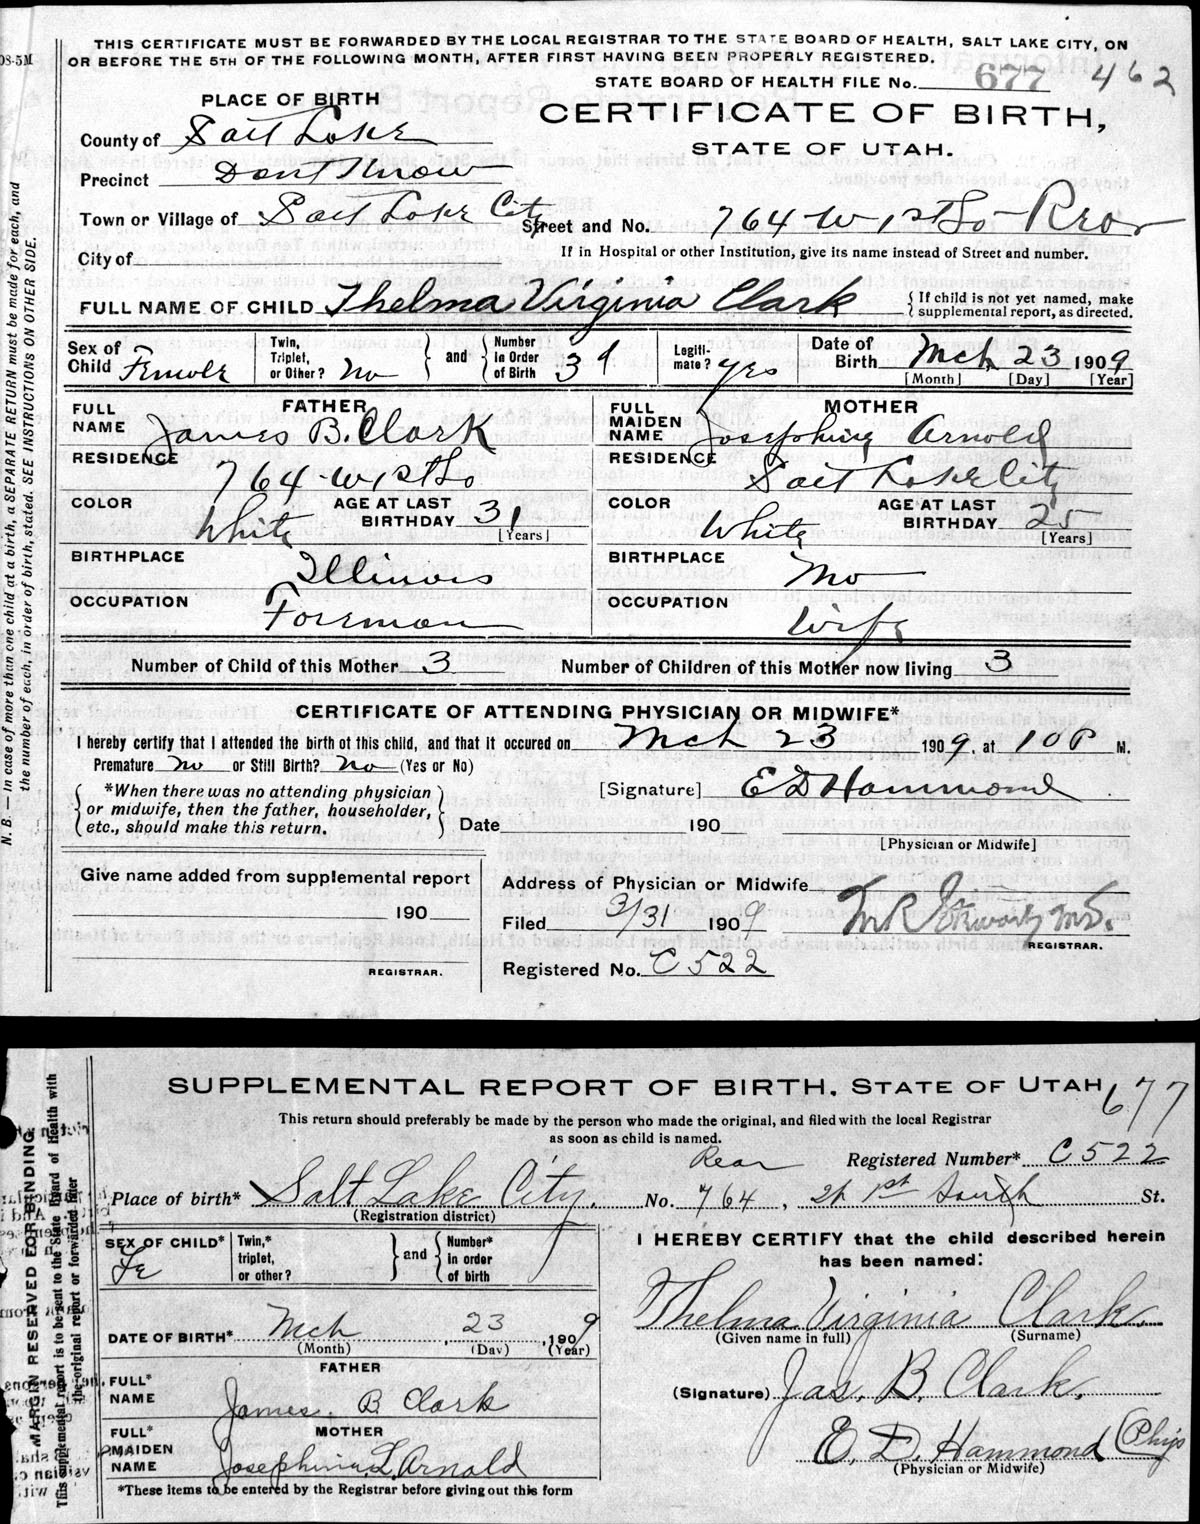 THIS CERTIFICATE MUST BE FORWARDED BY THE LOCAL REGISTRAR TO THE STATE BOARD OF HEALTH, SALT LAKE CITY, ON
OR BEFORE THE 5TH OF THE FOLLOWING MONTH, AFTER FIRST HAVING BEEN PROPERLY REGISTERED.
08-5M
STATE BOARD OF HEALTH FILE No. 677 462
PLACE OF BIRTH
CERTIFICATE OF BIRTH,
STATE OF UTAH.
County of Salt Lake
Precinct Dont Know
Town or Village of Salt Lake City
Street and No. 764-W 1st So-Rear
City of
If in Hospital or other Institution, give its name instead of Street and number.
FULL NAME OF CHILD Thelma Virginia Clark
{ If child is not yet named, make supplemental report, as directed.
Sex of Child Female
Twin, Triplet, or Other? No } and { Number in Order of Birth 3
Legiti-mate? yes
Date of Birth Mch 23 1909
[Month] [Day] [Year]
FATHER
FULL NAME James B. Clark
RESIDENCE 764-W 1st So
COLOR White
AGE AT LAST BIRTHDAY 31
[Years]
BIRTHPLACE Illinois
OCCUPATION Foreman
MOTHER
FULL MAIDEN NAME Josephine Arnold
RESIDENCE Salt Lake City
COLOR White
AGE AT LAST BIRTHDAY 25
[Years]
BIRTHPLACE Mo
OCCUPATION Wife
Number of Child of this Mother 3
Number of Children of this Mother now living 3
CERTIFICATE OF ATTENDING PHYSICIAN OR MIDWIFE*
I hereby certify that I attended the birth of this child, and that it occured on Mch 23 1909, at 10 P M.
Premature No or Still Birth? No (Yes or No)
{ *When there was no attending physician
or midwife, then the father, householder,
etc., should make this return. }
[Signature] E D Hammond
Date 190
[Physician or Midwife]
Give name added from supplemental report
190
REGISTRAR.
Address of Physician or Midwife
Filed 3/31 1909
M.D.
REGISTRAR.
Registered No. C 522
N. B. — In case of more than one child at a birth, a SEPARATE RETURN must be made for each, and
the number of each, in order of birth, stated. SEE INSTRUCTIONS ON OTHER SIDE.
SUPPLEMENTAL REPORT OF BIRTH. STATE OF UTAH 677
This return should preferably be made by the person who made the original, and filed with the local Registrar
as soon as child is named.
Registered Number* C 522
Place of birth* Salt Lake City.
(Registration district)
Rear
No. 764, W 1st South St.
SEX OF CHILD* Fe
Twin,* triplet, or other? } and { Number* in order of birth
DATE OF BIRTH* Mch 23, 1909
(Month) (Day) (Year)
FATHER
FULL* NAME James. B Clark
MOTHER
FULL* MAIDEN NAME Josephine L. Arnold
*These items to be entered by the Registrar before giving out this form
I HEREBY CERTIFY that the child described herein
has been named:
Thelma Virginia Clark.
(Given name in full) (Surname)
(Signature) Jas. B. Clark.
E. D. Hammond
(Physician or Midwife)
MARGIN RESERVED FOR BINDING
This supplemental report is to be sent to the State Board of Health with
the original report or forwarded later